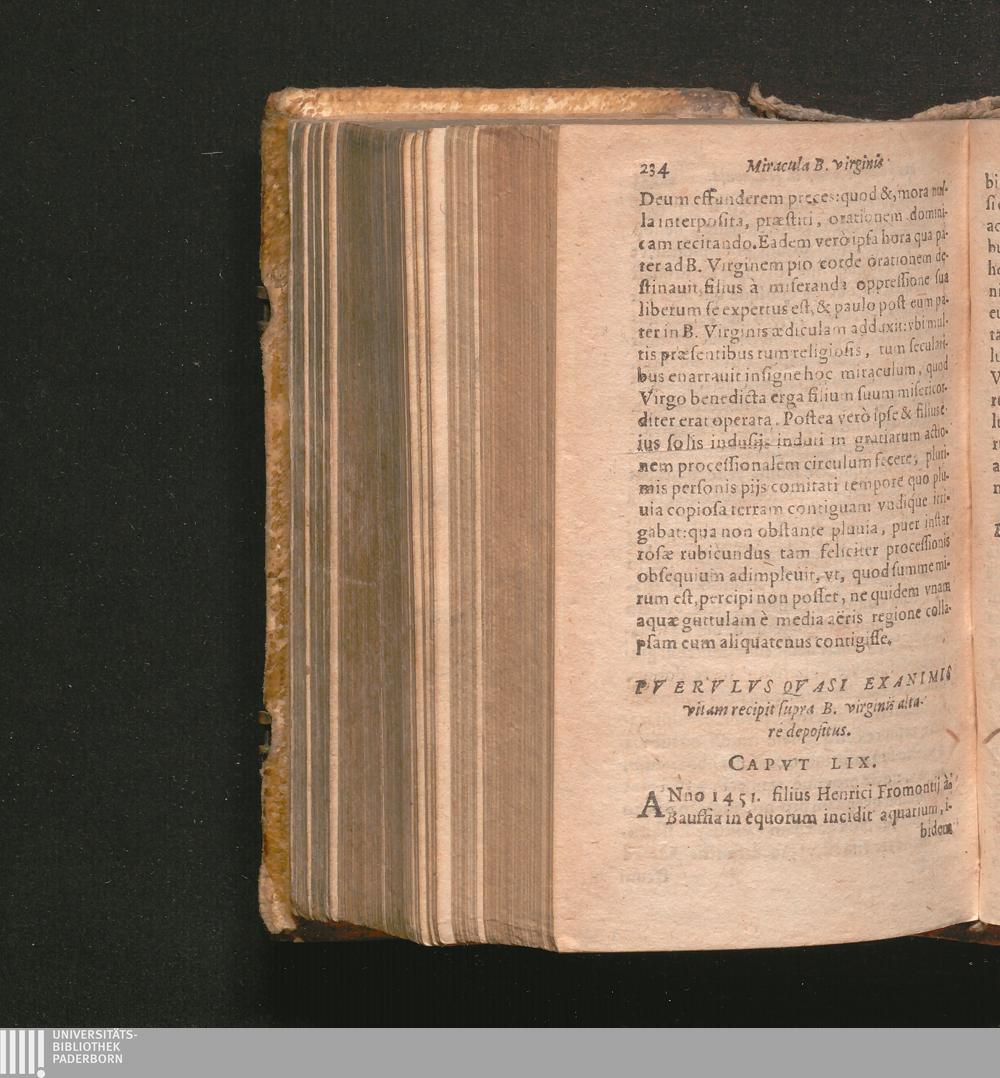 234 Miracula B. virginis
Deum effunderem preces: quod &, mora nul-
la interposita, præstiti, orationem domini-
cam recitando. Eadem verò ipsa hora qua pa-
ter ad B. Virginem pio corde orationem de-
stinauit, filius à miseranda oppressione sua
liberum se expertus est, & paulo post eum pa-
ter in B. Virginis ædiculam adduxit: vbi mul-
tis præsentibus tum religiosis, tum seculari-
bus enarrauit insigne hoc miraculum, quod
Virgo benedicta erga filium suum misericor-
diter erat operata. Postea verò ipse & filius e-
ius solis indusijs induti in gratiarum actio-
nem processionalem circulum fecere, pluri-
mis personis pijs comitati tempore quo plu-
uia copiosa terram contiguam vndique irri-
gabat: qua non obstante pluuia, puer instar
rosæ rubicundus tam feliciter processionis
obsequium adimpleuit, vt, quod summe mi-
rum est, percipi non posset, ne quidem vnam
aquæ guttulam è media aëris regione colla-
psam eum aliquatenus contigisse.
PVERVLVS QVASI EXANIMIS
vitam recipit supra B. virginis alta-
re depositus.
CAPVT LIX.
ANno 1451. filius Henrici Fromontij à
Baussia in equorum incidit aquarium, i-
bidem
bi
ac
bu
he
ni
eu
ta
lu
V
re
a
UNIVERSITÄTS-
BIBLIOTHEK
PADERBORN